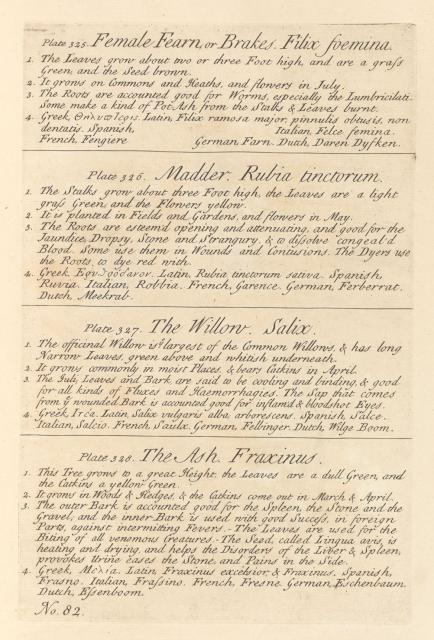 Plate 325. Female Fearn, or Brakes. Filix foemina.
1. The Leaves grow about two or three Foot high, and are a grass
Green, and the Seed brown.
2. It grows on Commons and Heaths, and flowers in July.
3. The Roots are accounted good for Worms, especially the Lumbricilati.
Some make a kind of Pot Ash from the Stalks & Leaves burnt.
4. Greek, Θηλυπτερις. Latin, Filix ramosa major, pinnulis obtusis, non
dentatis. Spanish, Italian, Felce femina.
French, Fengiere German Farn. Dutch, Daren Dyfken.
Plate 326. Madder. Rubia tinctorum.
1. The Stalks grow about three Foot high, the Leaves are a light
grass Green, and the Flowers yellow.
2. It is planted in Fields and Gardens, and flowers in May.
3. The Roots are esteem'd opening and attenuating, and good for the
Jaundice, Dropsy, Stone and Strangury, & to dissolve congeal'd
Blood. Some use them in Wounds and Contusions. The Dyers use
the Roots, to dye red with.
4. Greek, Latin, Rubia tinctorum sativa. Spanish,
Ruvia. Italian, Robbia. French, Garence. German, Ferberrat.
Dutch, Meekrab.
Plate 327. The Willow. Salix.
1. The officinal Willow is yᵉ largest of the Common Willows, & has long
Narrow Leaves, green above and whitish underneath.
2. It grows commonly in moist Places, & bears Catkins in April.
3. The Juli, Leaves and Bark, are said to be cooling and binding, & good
for all kinds of Fluxes and Haemorrhagies. The Sap that comes
from yᵉ wounded Bark is accounted good for inflam'd & bloodshot Eyes.
4. Greek, Ιτεα. Latin, Salix vulgaris alba, arborescens. Spanish, Salce.
Italian, Salcio. French, Saulx. German, Felbinger. Dutch, Wilge Boom.
Plate 328. The Ash. Fraxinus.
1. This Tree grows to a great Height, the Leaves are a dull Green, and
the Catkins a yellow Green.
2. It grows in Woods & Hedges, & the Catkins come out in March & April.
3. The outer Bark is accounted good for the Spleen, the Stone and the
Gravel; and the inner Bark is used with good Success, in foreign
Parts, against intermitting Fevers. The Leaves are used for the
Biting of all venomous Creatures. The Seed, called Lingua avis, is
heating and drying, and helps the Disorders of the Liver & Spleen,
provokes Urine eases the Stone, and Pains in the Side.
4. Greek, Μελια. Latin, Fraxinus excelsior, & Fraxinus. Spanish,
Frasno. Italian, Frassino. French, Fresne. German, Eschenbaum.
Dutch, Essenboom.
No. 82.